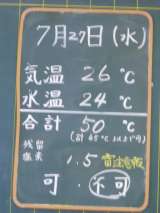 7月27日(水)
気温 26℃
水温 24℃
合計 50℃
(計45℃以上で可)
残留塩素 1.5 雷注意報
可・不可